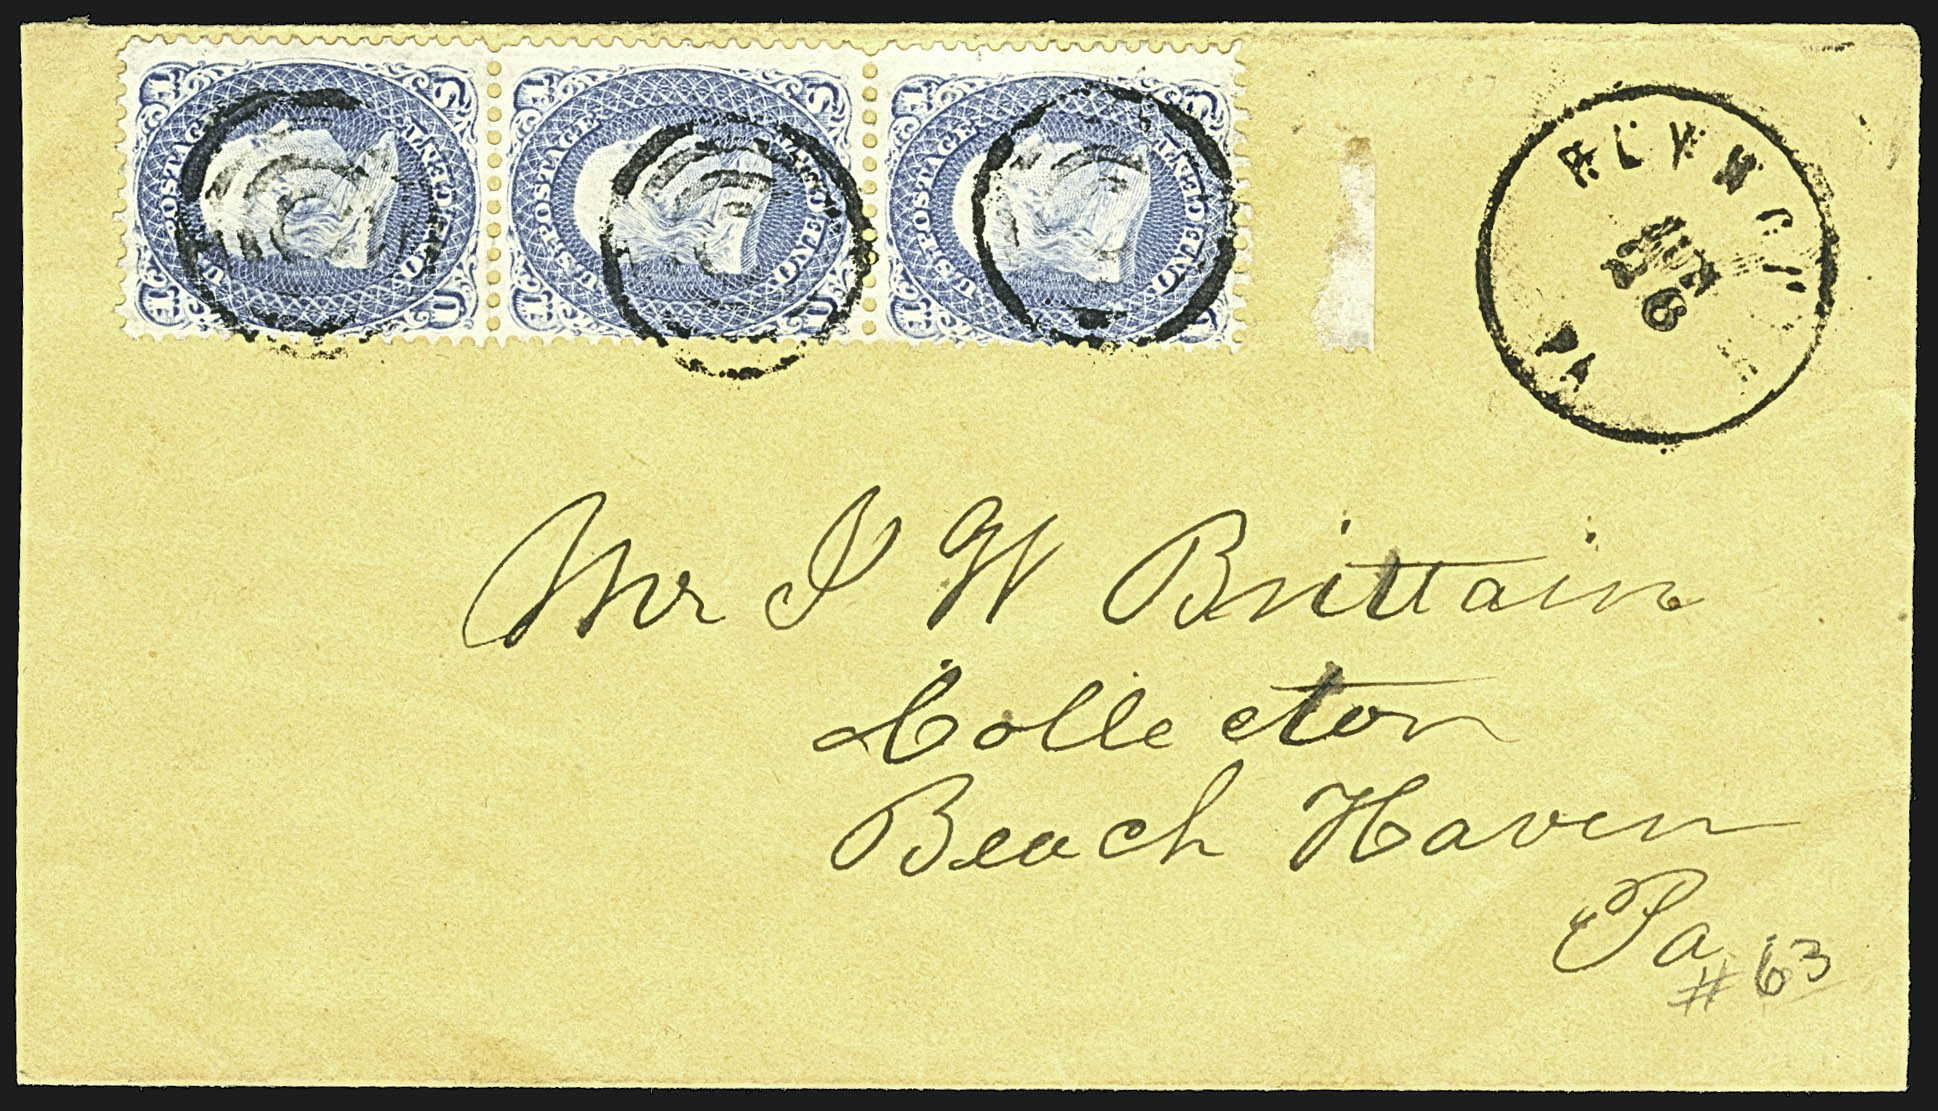 U.S. POSTAGE ONE CENT
U.S. POSTAGE ONE CENT
U.S. POSTAGE ONE CENT
PA
6
Mr J W Brittain
Collector
Beach Haven
Pa
# 63